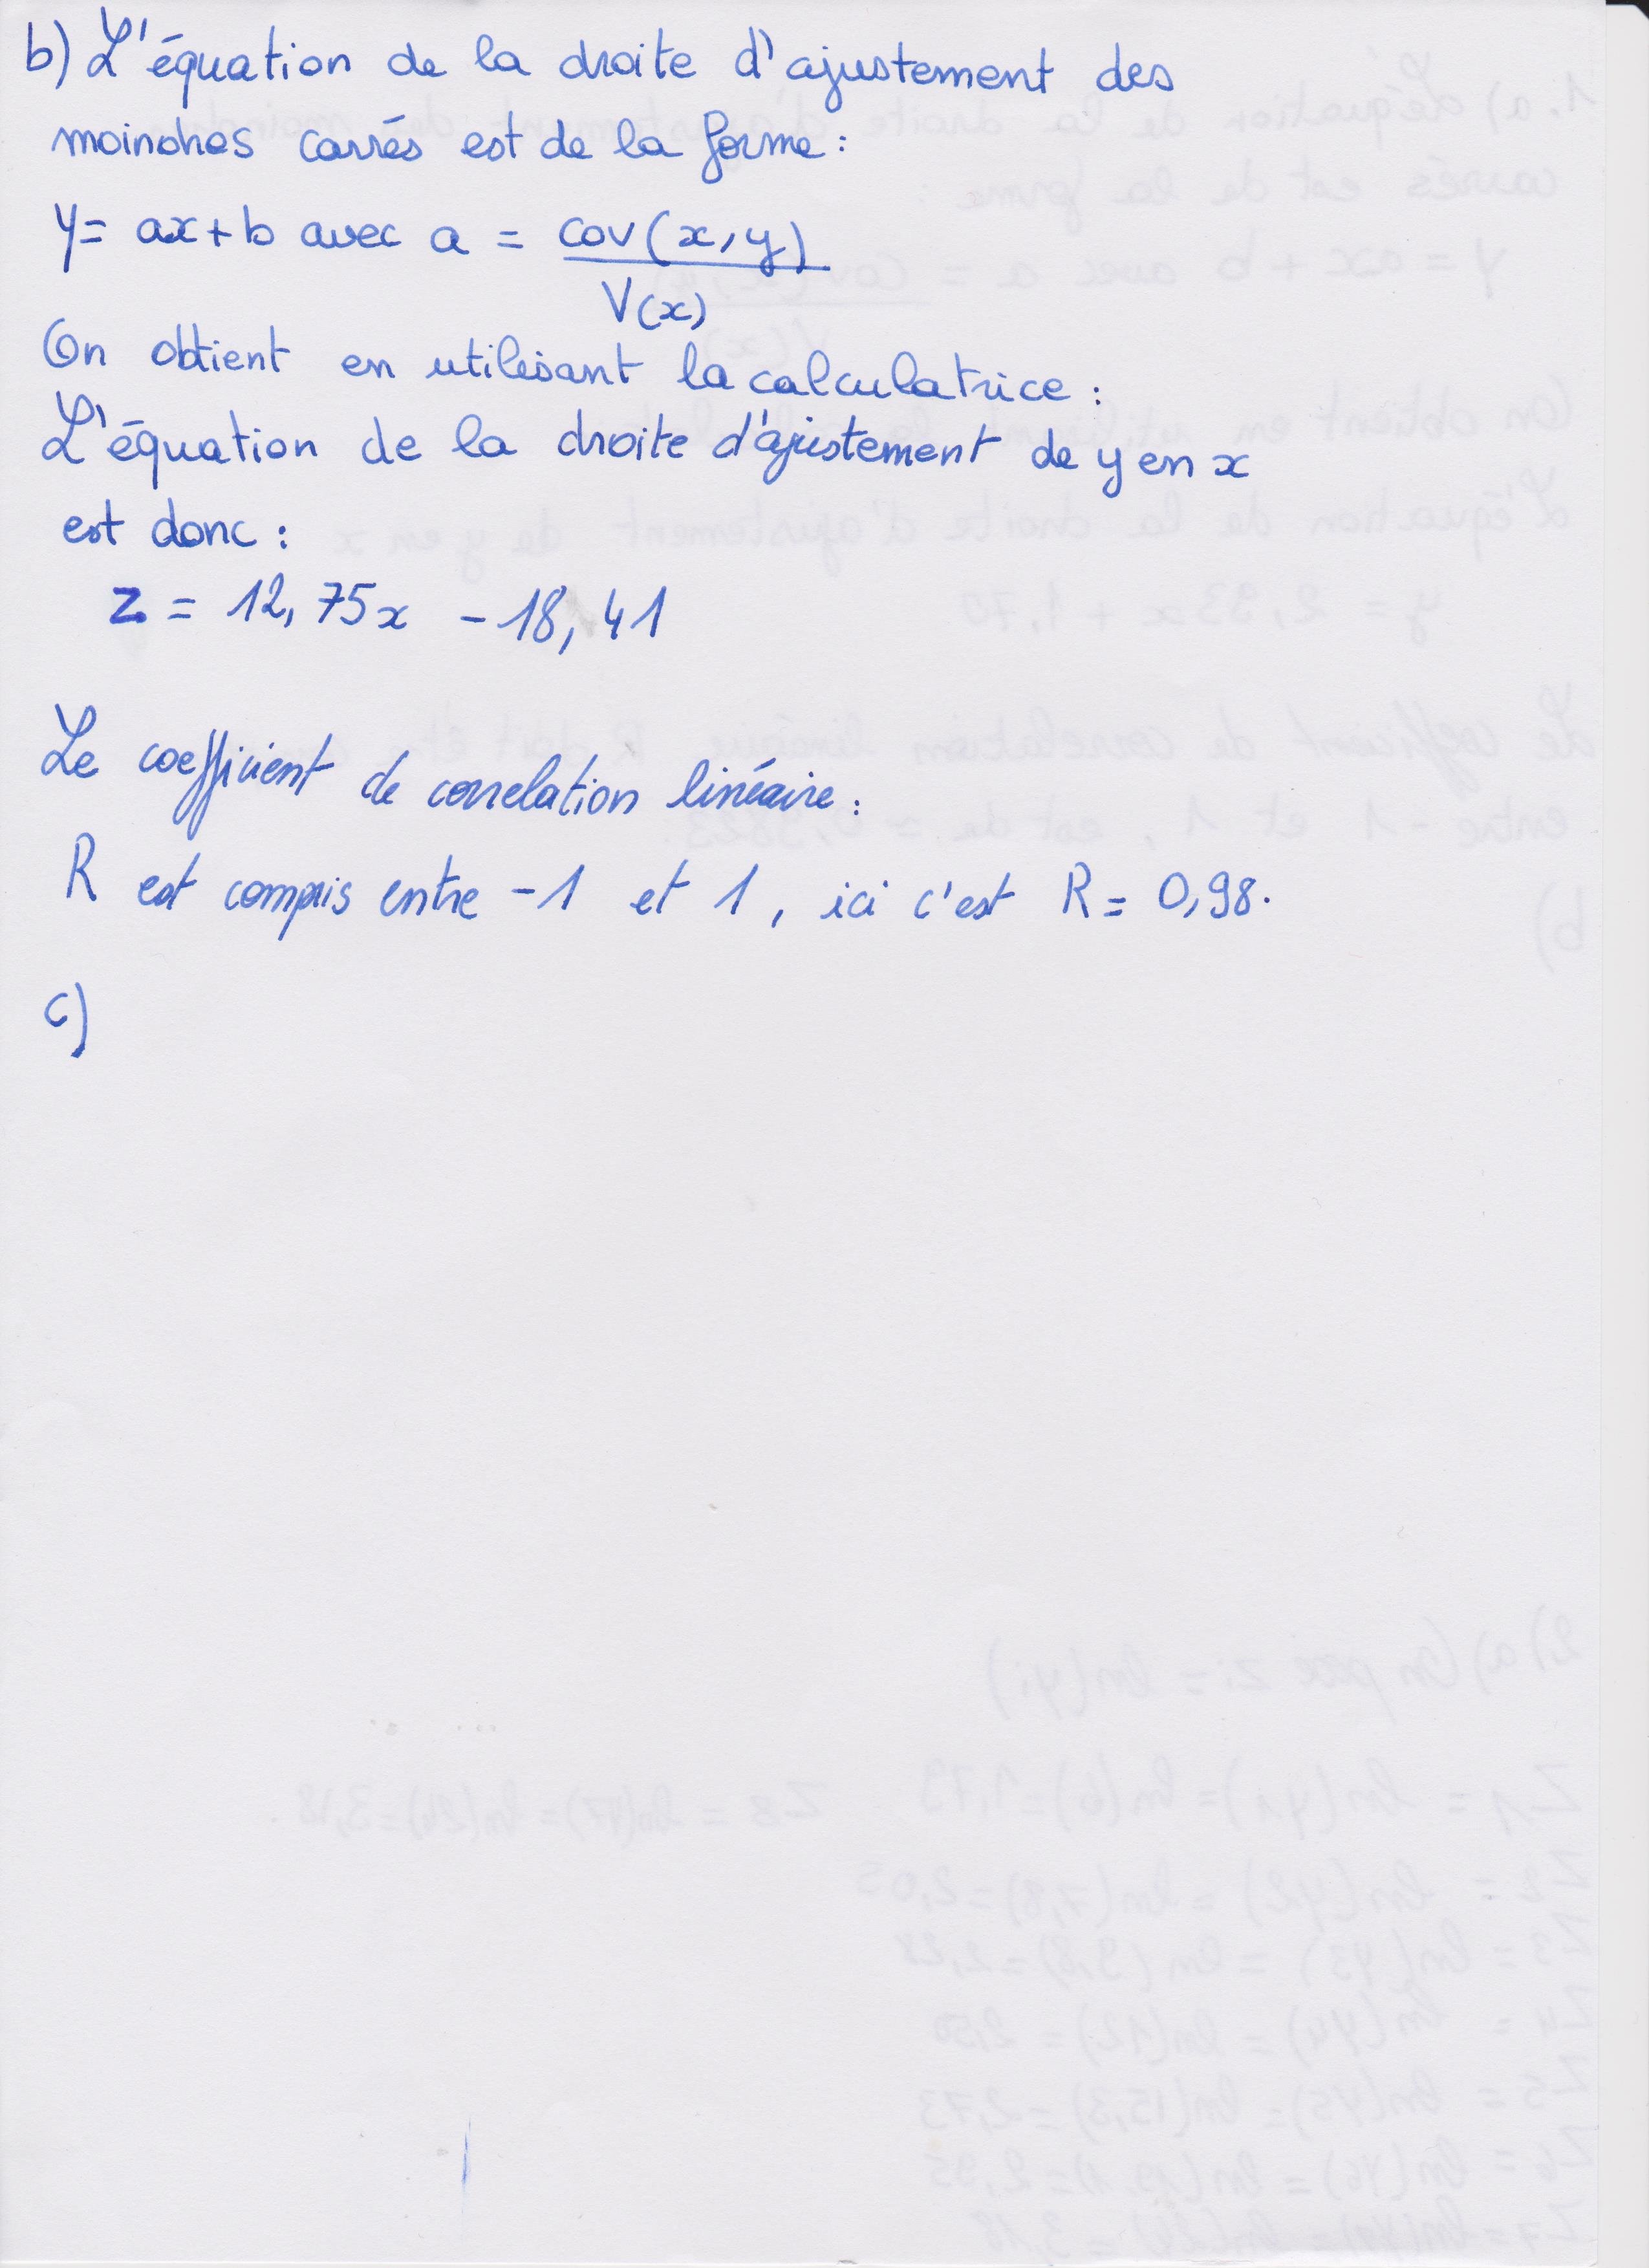 b) L'équation de la droite d'ajustement des
moindres carrés est de la forme :
y = ax + b avec a = cov(x,y)
V(x)
On obtient en utilisant la calculatrice :
L'équation de la droite d'ajustement de y en x
est donc :
z = 12,75x - 18,41
Le coefficient de correlation linéaire :
R est compris entre -1 et 1, ici c'est R = 0,98.
c)